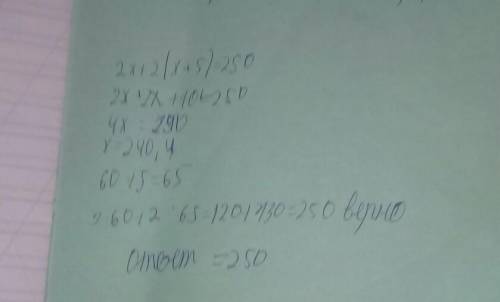 2x+2(x+5)=250
2x+2x+10=250
4x=240
x=240,4
60+5=65
60+2·65=120+130=250 верно
ответ=250